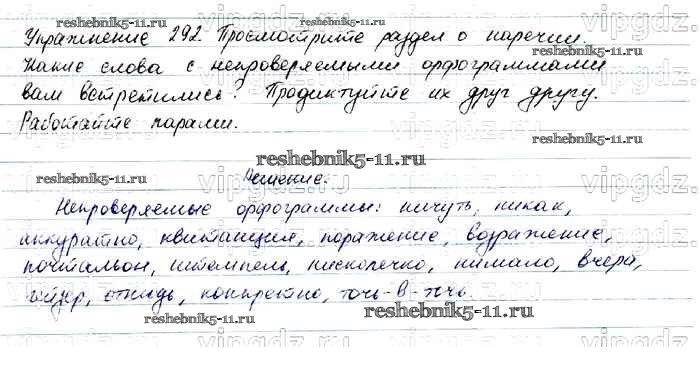 reshebnik5-11.ru
Упражнение 292. Просмотрите раздел о наречии.
Какие слова с непроверяемыми орфограммами
вам встретились? Продиктуйте их друг другу.
Работайте парами.
reshebnik5-11.ru
vipgdz.ru
Решение.
Непроверяемые орфограммы: ничуть, никак,
аккуратно, квитанция, поражение, возражение,
почтальон, штемпель, нисколечко, нимало, вчера,
отнюдь, конкретно, точь-в-точь.
reshebnik5-11.ru
reshebnik5-11.ru
vipgdz.ru